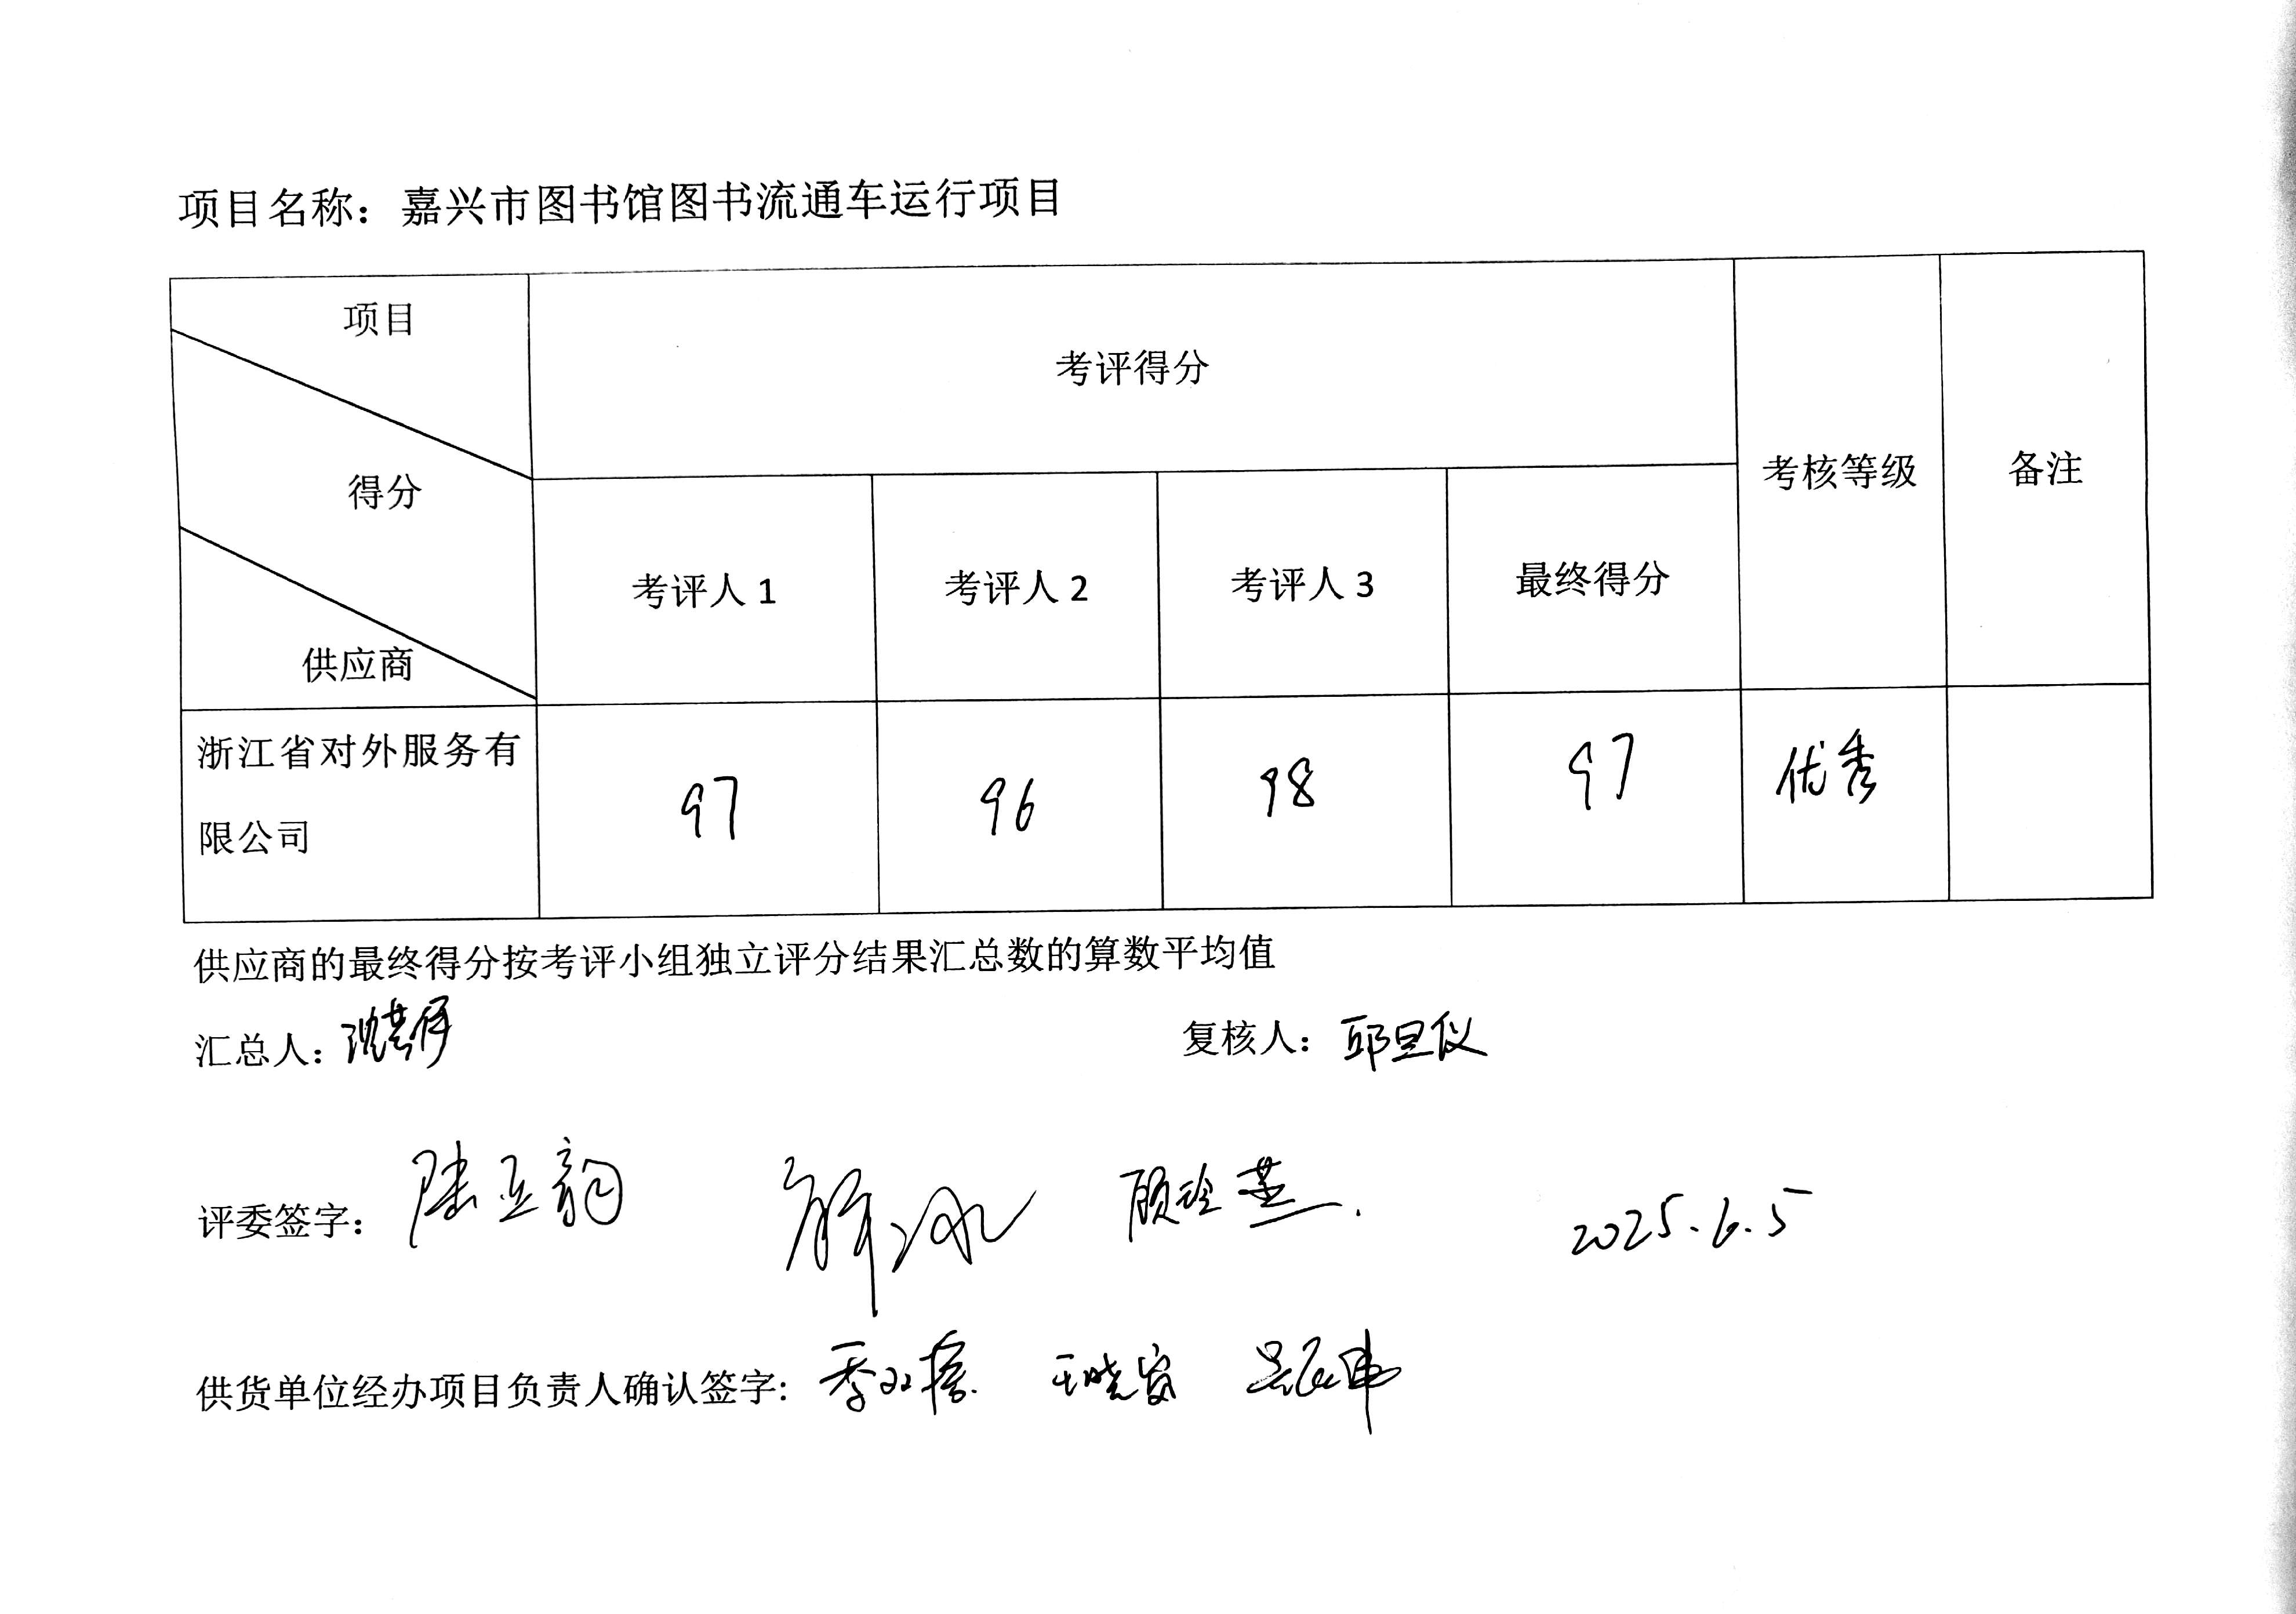 项目名称：嘉兴市图书馆图书流通车运行项目
项目
得分
供应商
考评得分
考核等级
备注
考评人 1
考评人 2
考评人 3
最终得分
浙江省对外服务有
限公司
97
96
98
97
优秀
供应商的最终得分按考评小组独立评分结果汇总数的算数平均值
汇总人：
复核人：邱旦仪
评委签字：陆亚韵 解冰 顾玲燕 2025.6.5
供货单位经办项目负责人确认签字：